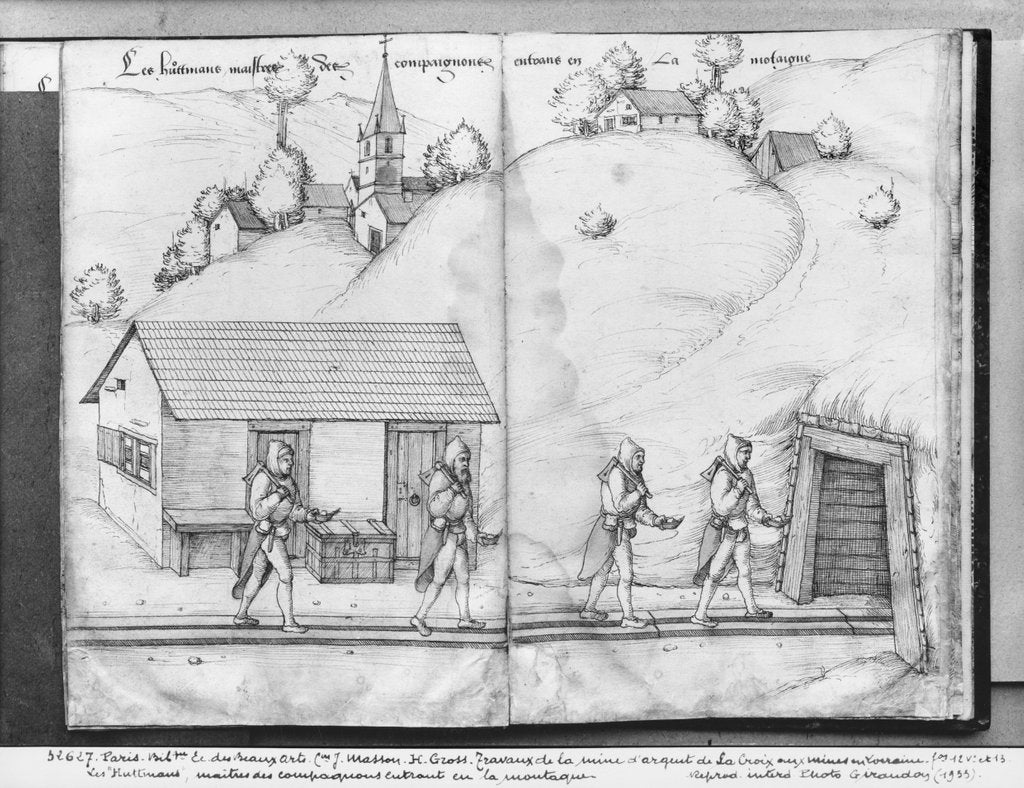 Les hůttmans maistres des compaignons entrans en La motaigne
52627. Paris. Bil.que Ec. des Beaux Arts. Con J. Masson. H. Gross. Travaux de la mine d'argent de La Croix aux mines en Lorraine. fos 12 Vo et 13.
Les "Huttmans", maitres des compagnons entrant en la montagne
Reprod. interd Photo Giraudon (1933).